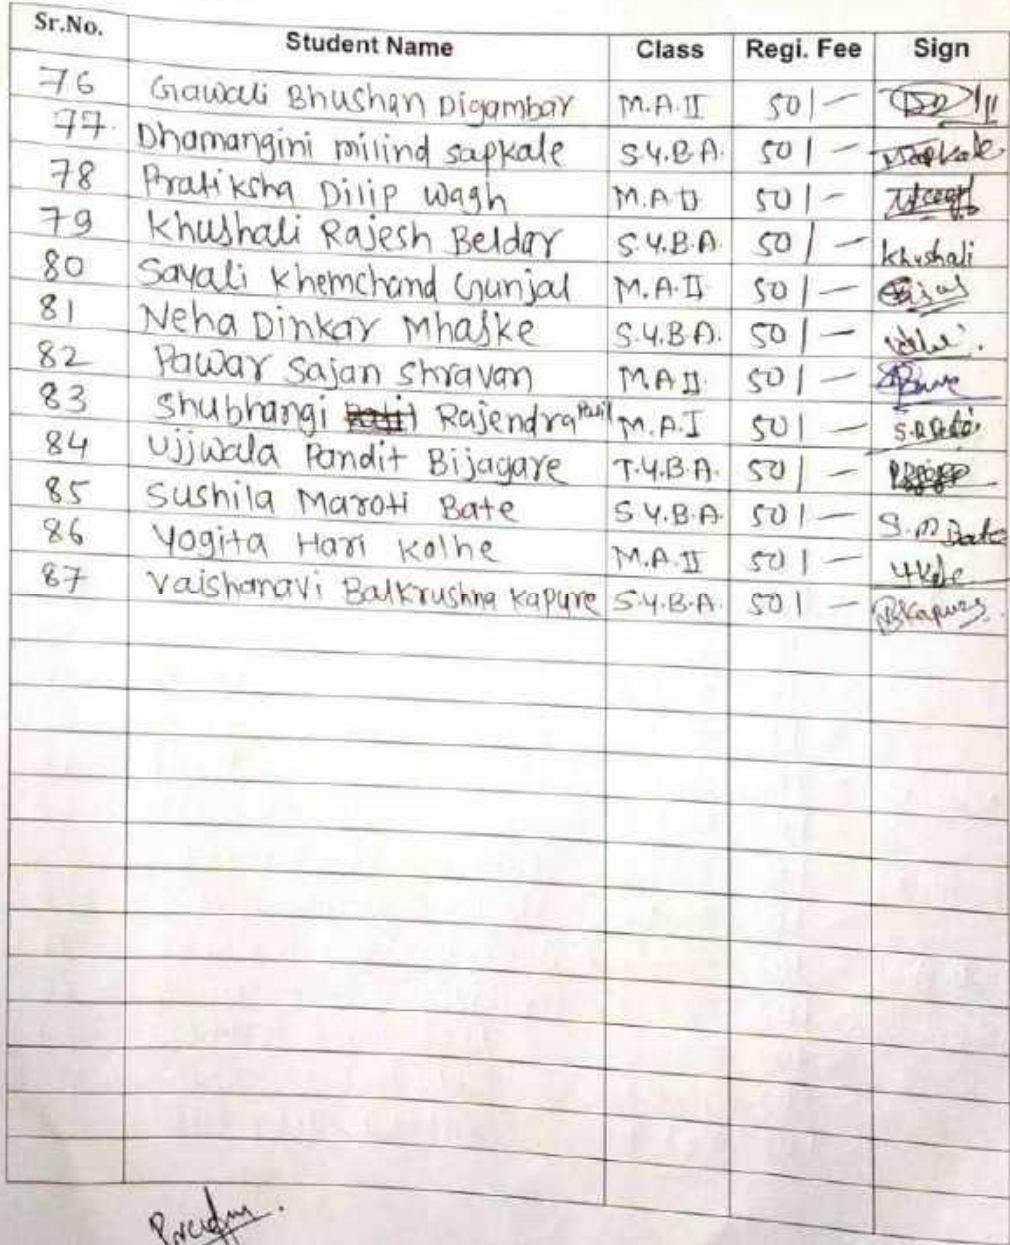 Sr.No. Student Name Class Regi. Fee Sign
76 Gawali Bhushan Digambar M.A.II 50/-
77. Dhamangini milind sapkale S.Y.B.A. 50/- Msapkale
78 Pratiksha Dilip Wagh M.A II 50/-
79 Khushali Rajesh Beldar S.Y.B.A. 50/- khushali
80 Sayali Khemchand Gunjal M.A.II 50/-
81 Neha Dinkar Mhaske S.Y.B.A. 50/-
82 Pawar Sajan Shravan M A II 50/-
83 Shubhangi Rajendra Patil M.A.I 50/-
84 Ujjwala Pandit Bijagare T.Y.B.A. 50/-
85 Sushila Maroti Bate S Y.B.A. 50/- S.M Bate
86 Yogita Hari Kolhe M.A.II 50/-
87 Vaishanavi Balkrushna Kapure S.Y.B.A. 50/- Kapure